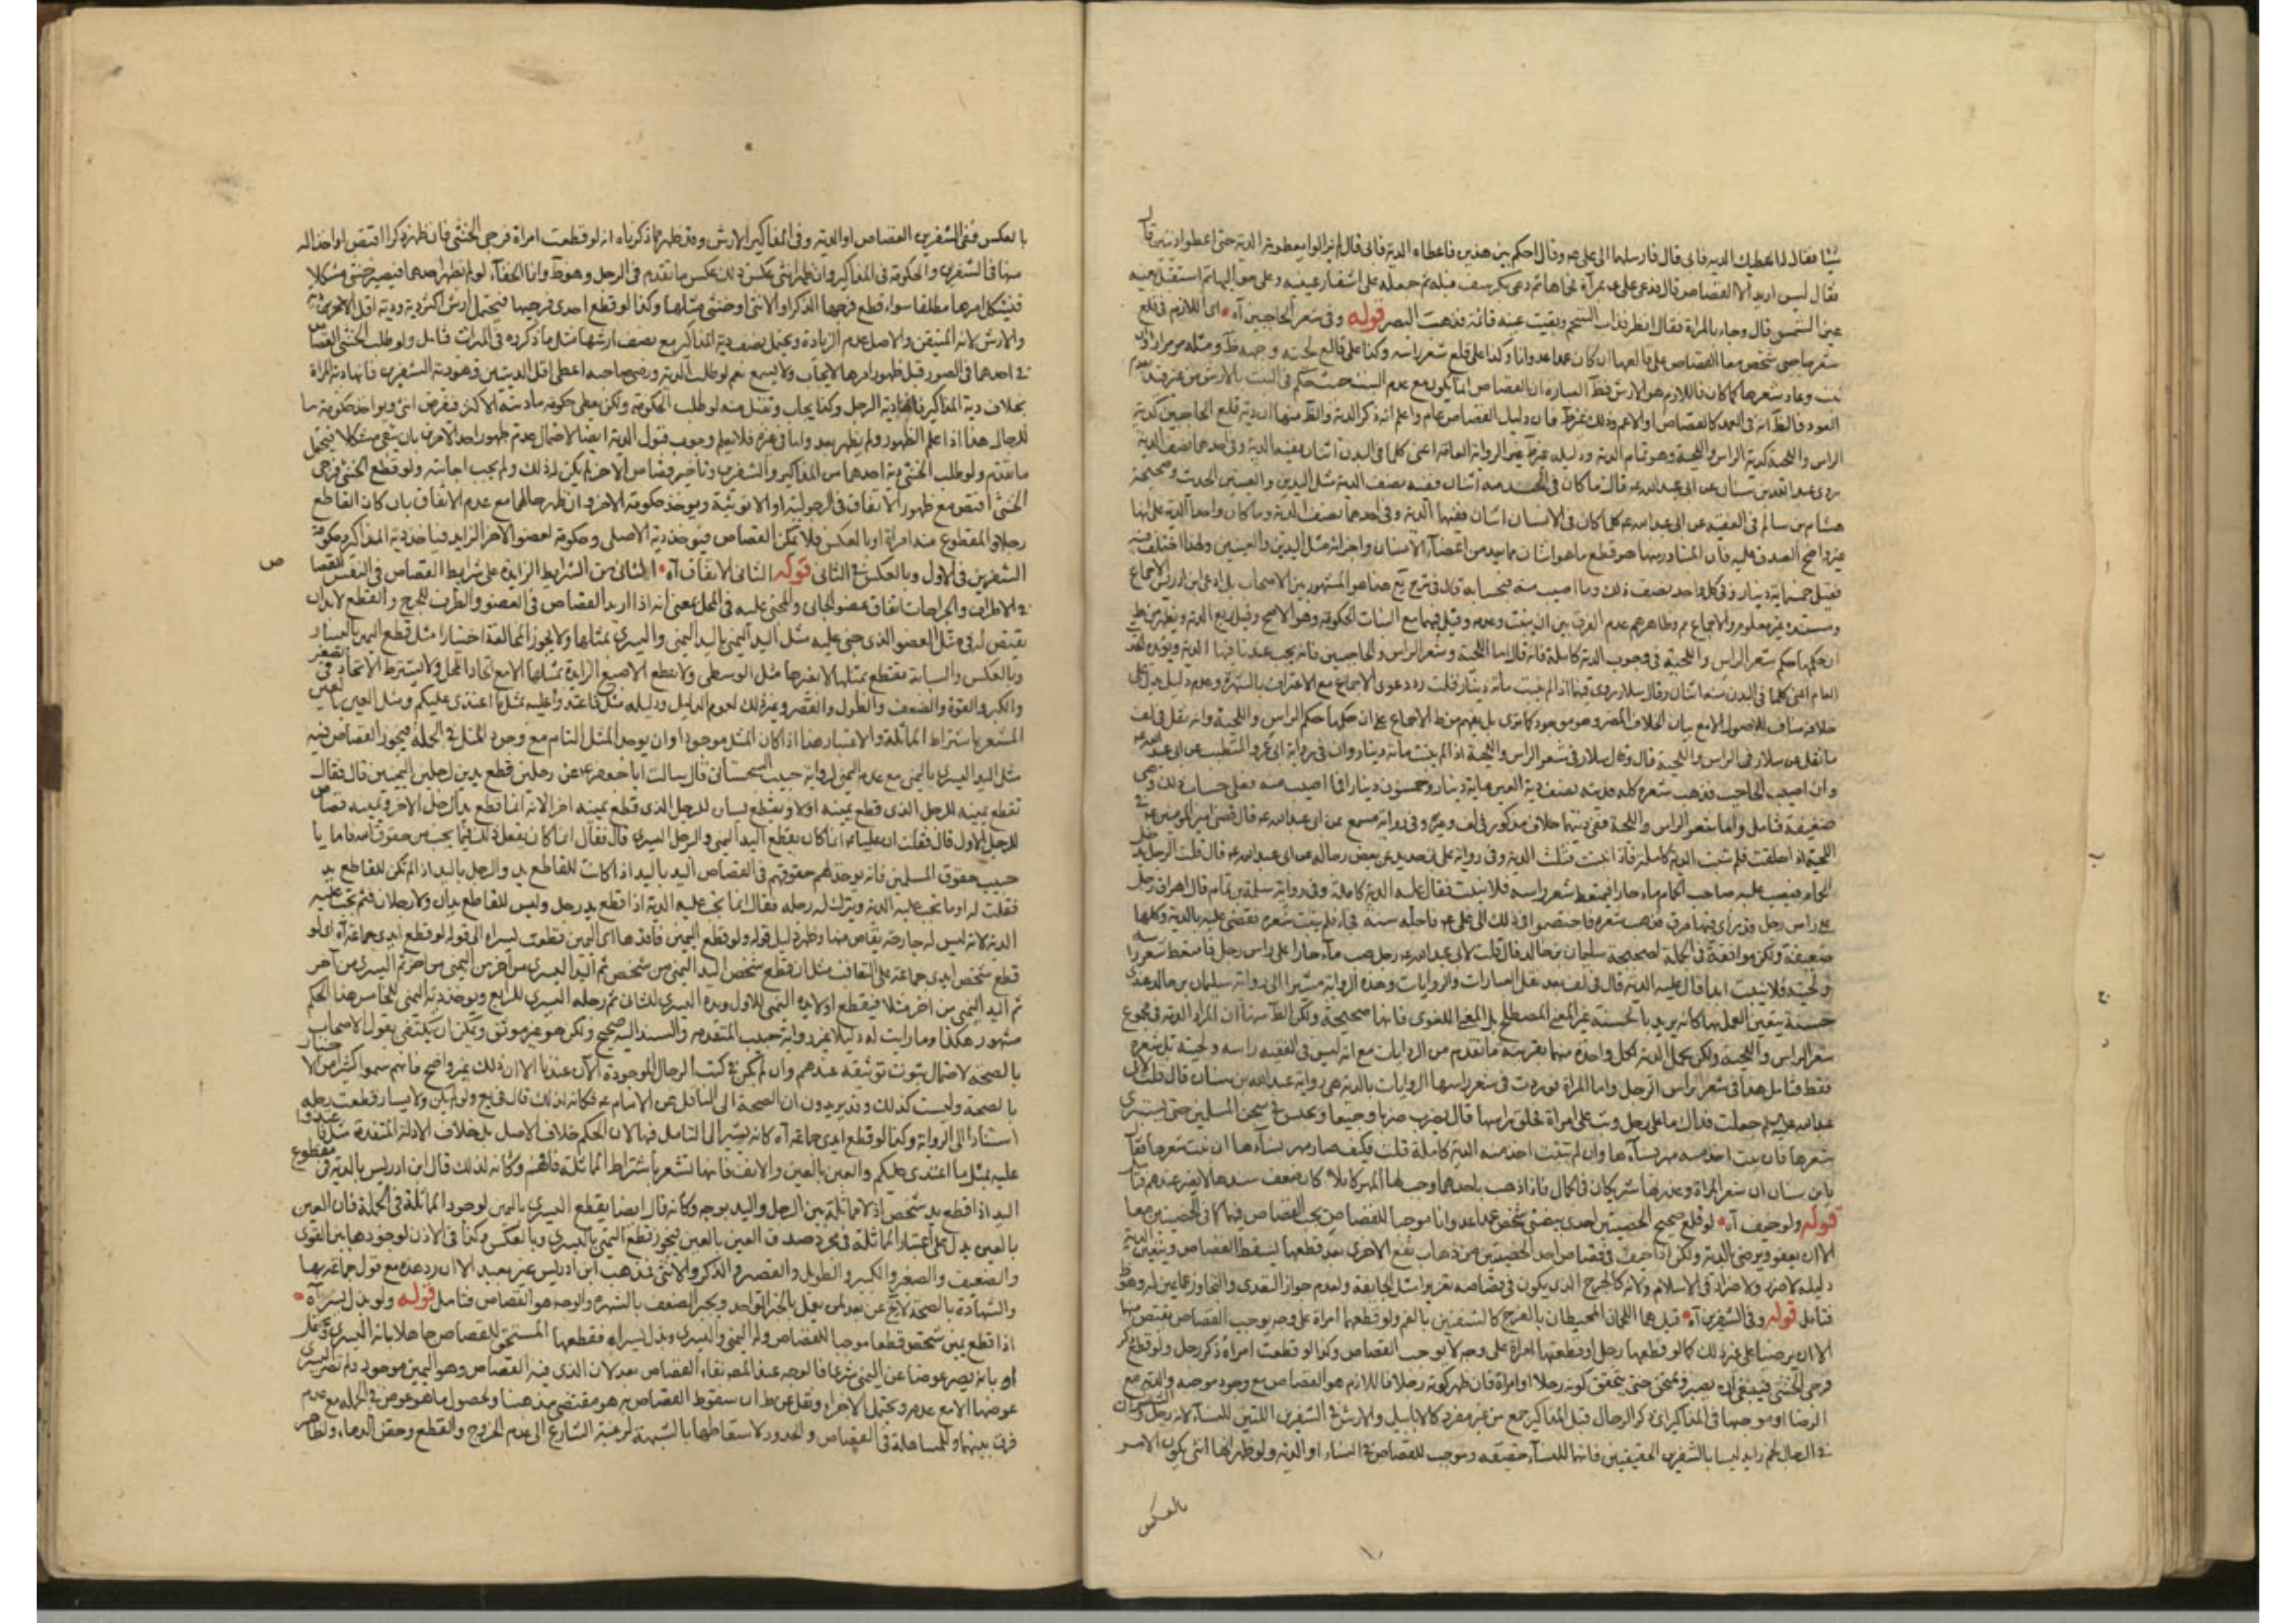 شيئا فقال انا اعطيك الدية فابى قال فارسلهما الى على ع وقال احكم بين هذين فاعطاه الدية فابى قال فلم يزالوا يعطونه الدية حتى اعطوا ديتين قال
فقال ليس اريد الا القصاص قال فدعى على ع بمرآة فحماها ثم دعى بكرسف فبله ثم جعله على اشفار عينيه وعلى حواليها ثم استقبل بعينه
عين الشمس قال وجاء بالمراة فقال انظر فذاب الشحم وبقيت عينه قائمة وذهبت البصر قوله وفى شعر الحاجبين آه اى اللازم فى قلع
شعرهما من شخص معا القصاص على قالعهما ان كان عمدا عدوانا وكذا على قلع شعر راسه وكذا على قالع لحيته وجهه ظ
نبت وعاد شعرهما كما كان فاللازم هو الارش فظ العبارة ان القصاص انما يكون مع عدم النبت حيث حكم فى النبت بالارش من غير قيد
العود فالظ انه فى العمد كالقصاص او الاعم وذلك غير ظ فان دليل القصاص عام واعلم انه ذكر الدية والظ منها ان دية قلع الحاجبين كدية
الراس واللحية كدية الراس واللحية وهو تمام الدية ودليله غير ظ غير الرواية العامة اعنى كلما فى البدن اثنان ففيهما الدية وفى احدهما نصف الدية
روى عبد الله بن سنان عن ابى عبد الله ع قال ما كان فى الجسد منه اثنان ففيه نصف الدية مثل اليدين والعينين الحديث وصحيحة
هشام بن سالم فى الفقيه عن ابى عبد الله ع كلما كان فى الانسان اثنان ففيهما الدية وفى احدهما نصف الدية وما كان واحدا الدية
غير واضح الصدق عليه فان المتبادر منها هو قطع ما هو اثنان مما يعد من اعضاء الانسان واجزائه مثل اليدين والعينين ولهذا اختلف فيه
فقيل خمسمائة دينار وفى كل واحد نصف ذلك وما اصيب منه فبحسابه قال فى شرح يع هذا هو المشهور بين الاصحاب بل ادعى ابن ادريس الاجماع
ومستنده غير معلوم والاجماع مم وظاهرهم عدم الفرق بين ان ينبت وعدمه وقيل فيهما مع النبات الحكومة وهو الاصح وقيل ربع الدية
ان حكمها حكم شعر الراس واللحية فى وجوب الدية كاملة فانه قال اما اللحية وشعر الراس والحاجبين فانه يجب عندنا فيها الدية
العام اعنى كلما فى البدن منه اثنان وقال سلار روى فيها اذا لم ينبت مائة دينار قلت رد دعوى الاجماع مع الاعتراف بالشهرة وعدم دليل
ما نقل عن سلار فى الراس واللحية قال وقال سلار فى شعر الراس واللحية اذا لم ينبت مائة دينار وان فى رواية ابى عمرو المتطبب عن ابى عبد الله ع
وان اصيب الحاجب فذهب شعره كله فديته نصف دية العين مائة دينار وخمسون دينارا فما اصيب منه فعلى حساب ذلك
ضعيفة فتامل واما شعر الراس واللحية ففى ديتهما خلاف مذكور فى لف وغيره وفى رواية مسمع عن ابى عبد الله ع قال قضى امير المؤمنين ع فى
اللحية اذا حلقت فلم تنبت الدية كاملة فاذا نبتت فثلث الدية وفى رواية على بن حديد عن بعض رجاله عن ابى عبد الله ع قال قلت الرجل يدخل
الحمام فيصب عليه صاحب الحمام ماء حارا فيمتعط شعر راسه فلا ينبت فقال عليه الدية كاملة وفى رواية سلمة بن تمام قال اهراق رجل
على راس رجل قدرا فيها مرق فذهب شعره فاختصموا فى ذلك الى على ع فاجله سنة فجاء فلم ينبت شعره فقضى عليه بالدية وكلها
ضعيفة ولكن موافقة فى الجملة لصحيحة سليمان بن خالد قال قلت لابى عبد الله ع رجل صب ماء حارا على راس رجل فامتعط شعر راسه
ولحيته فلا ينبت ابدا قال عليه الدية قال فى لف بعد نقل العبارات والروايات وهذه الرواية مشيرا الى رواية سليمان بن خالد عندى
حسنة يتعين العمل بها كانه يريد بالحسنة غير المعنى المصطلح بل المعنى اللغوى فانها صحيحة ولكن الظ منها ان المراد الدية فى مجموع
شعر الراس واللحية ولكن يحمل الدية لكل واحدة منهما بقرينة ما تقدم من الروايات مع انه ليس فى الفقيه راسه ولحيته بل شعره
فقط فتامل هذا فى شعر راس الرجل واما المراة فوردت فى شعر راسها الروايات بالدية هى رواية عبد الله بن سنان قال قلت لابى
عبد الله عليه السلام جعلت فداك ما على رجل وثب على امراة فحلق راسها قال يضرب ضربا وجيعا ويحبس فى سجن المسلمين حتى يستبرى
شعرها فان نبت اخذ منه مهر نسآءها وان لم ينبت اخذ منه الدية كاملة قلت فكيف صار مهر نسآءها ان نبت شعرها فقال
يا بن سنان ان شعر المراة وعذرتها شريكان فى الجمال فاذا ذهب باحدهما وجب لها المهر كاملا كان ضعف سندها لا يضر عندهم فتامل
قوله ولو خيف آه لو قلع صحيح الخصيتين احدى بيضتى شخص عمدا عدوانا موجبا للقصاص يجب القصاص فيها كما فى الخصيتين معا
الا ان يعفو ويرضى الدية ولكن اذا خيف فى قصاص احد الخصيتين من ذهاب نفع الاخرى بعد قطعها يسقط القصاص ويتعين الدية
دليله لا ضرر ولا ضرار فى الاسلام ولانه كالجرح الذى يكون فى قصاصه تغرير مثل الجايفة ولعدم جواز التعدى والتجاوز عما يمين له وهو ظ
فتامل قوله وفى الشفرين آه قيل هما اللحمان المحيطان بالفرج كالشفتين بالفم ولو قطعهما امراة على وجه يوجب القصاص يقتص منها
الا ان يرضيا على غير ذلك كما لو قطعها رجل او قطعتها امراة على وجه لا يوجب القصاص وكذا لو قطعت امراة ذكر رجل ولو قطع ذكر
فرجى الخنثى فينبغى ان يصبر ويمتحن حتى يتحقق كونه رجلا او امراة فان ظهر كونه رجلا فاللازم هو القصاص مع وجود موجبه والدية مع
الرضا او موجبها فى المذاكير اى ذكر الرجال قيل المذاكير جمع من غير مفرد كالابابيل والارش فى الشفرين اللتين للنسآء لانه رجل والشفران
فى الرجال لحم زايد ليسا بالشفرين الحقيقيين فانها للنسآء حقيقة وموجب للقصاص فى النساء او الدية ولو ظهر انها انثى يكون الامر
بالعكس
بالعكس ففى الشفرين القصاص او الدية وفى المذاكير الارش وقد ظهر مما ذكرناه انه لو قطعت امراة فرجى الخنثى فان ظهر ذكرا اقتص او اخذ الد
منها فى الشفرين والحكومة فى المذاكير وان ظهر انثى عكس ذلك عكس ما تقدم فى الرجل وهو ظ وانما الخفآء لو لم يظهر احدهما فيصير خنثى مشكلا
فيشكل امرها مطلقا سواء قطع فرجها الذكر او الانثى او خنثى مثلها وكذا لو قطع احدى فرجيها فيحتمل ارش اكثر دية ودية اقل الامرين
والارش لانه المتيقن والاصل عدم الزيادة ويحتمل نصف دية المذاكير مع نصف ارشها مثل ما ذكروه فى الميراث فتامل ولو طلب الخنثى القصاص
فى احدهما فى الصور قبل ظهور امرها لا يجاب ولا يسمع نعم لو طلب الدية ورضى صاحبه اعطى اقل الديتين وهو دية الشفرين فانها دية المراة
بخلاف دية المذاكير فانها دية الرجل وكذا يجاب وتقبل منه لو طلب الحكومة ولكن يعطى حكومة ما ديته الاكثر
للرجال هذا اذا علم الظهور ولم يظهر بعد واما فى غيره فلا نعلم وجوب قبول الدية ايضا لاحتمال عدم ظهور احد الامرين بان يبقى مشكلا فيحتمل
ما تقدم ولو طلب الخنثى دية احدهما من المذاكير والشفرين وتاخير قصاص الاخر لم يكن له ذلك ولم يجب اجابته ولو قطع الخنثى فرجى
الخنثى اقتص مع ظهور الاتفاق فى الرجولية او الانوثية ويؤخذ حكومة الاخر وان ظهر حالهما مع عدم الاتفاق بان كان القاطع
رجلا والمقطوع منه امراة او بالعكس فلا يمكن القصاص فيؤخذ دية الاصلى وحكومة لعضو الاخر الزايد فياخذ دية المذاكر وحكومة
الشفرين فى الاول وبالعكس فى الثانى قوله الثانى الاتفاق آه الثانى من الشرايط الزايدة على شرايط القصاص فى النفس للقصاص
ص
فى الاطراف والجراحات اتفاق عضو الجانى والمجنى عليه فى المحل بمعنى انه اذا اريد القصاص فى العضو والطرف للجرح والقطع لا بد ان
يقتص له فى مثل العضو الذى جنى عليه مثل اليد اليمنى باليد اليمنى واليسرى بمثلها ولا يجوز المخالفة اختيارا مثل قطع اليمين باليسار
وبالعكس والسبابة تقطع بمثلها لا بغيرها مثل الوسطى ولا يقطع الاصبع الزايدة بمثلها الا مع اتحاد المحل ولا يشترط الاتحاد فى الصغر
والكبر والقوة والضعف والطول والقصر وغير ذلك لعموم الدليل ودليله مثل فاعتدوا عليه بمثل ما اعتدى عليكم ومثل العين بالعين
المشعر باشتراط المماثلة والاعتبار هذا اذا كان المثل موجودا وان يوجد المثل التام مع وجود المثل فى الجملة فيجوز القصاص فيه
مثل اليد اليسرى باليمنى مع عدم اليمنى لرواية حبيب السجستانى قال سالت ابا جعفر ع عن رجلين قطع يدين لرجلين اليمينين قال فقال
تقطع يمينه للرجل الذى قطع يمينه اولا ويقطع يساره للرجل الذى قطع يمينه اخر الانه انما قطع يد الرجل الاخر ويمينه قصاص
للرجل الاول قال فقلت ان عليا ع انما كان يقطع اليد اليمنى والرجل اليسرى قال فقال انما كان يفعل ذلك فيما يجب من حقوق الله فاما يا
حبيب حقوق المسلمين فانه يؤخذ لهم حقوقهم فى القصاص اليد باليد اذا كانت للقاطع يد والرجل باليد اذا لم تكن للقاطع يد
فقلت له او ما تجب عليه الدية ويترك له رجله فقال انما تجب عليه الدية اذا قطع يد رجل وليس للقاطع يدان ولا رجلان فثم تجب عليه
الدية لانه ليس له جارحة يقاص منها وظهر دليل قوله ولو قطع اليمين فاقدها اى اليمين قطعت يسراه الى قوله لو قطع ايدى جماعة آه اى لو
قطع شخص ايدى جماعة على التعاقب مثل ان قطع شخص اليد اليمنى من شخص ثم اليد اليسرى من اخر ثم اليمنى من اخر ثم اليسرى من آخر
ثم اليد اليمنى من اخر مثلا فيقطع اولا يده اليمنى للاول ويده اليسرى للثانى ثم رجله اليسرى للرابع ويؤخذ دية اليمنى للخامس هذا الحكم
مشهور هكذا وما رايت له دليلا غير رواية حبيب المتقدمة والسند اليه صحيح ولكن هو غير موثق ويمكن ان يكتفى بقول الاصحاب
بالصحة لاحتمال ثبوت توثيقه عندهم وان لم يكن فى كتب الرجال الموجودة الان عندنا الا ان ذلك غير واضح فانهم سموا كثيرا من الاخبار
بالصحة وليست كذلك وقد يريدون ان الصحة الى الناقل عن الامام ع فكانه لذلك قال فى يع ولو لم يكن ولا يسار قطعت رجله
استنادا الى الرواية وكذا لو قطع ايدى جماعة آه كانه يشير الى التامل فيها لان الحكم خلاف الاصل بل خلاف الادلة المتقدمة مثل فاعتدوا
عليه بمثل ما اعتدى عليكم والعين بالعين والانف فانها تشعر باشتراط المماثلة فافهم وكانه لذلك قال ابن ادريس بالدية فى مقطوع
اليد اذا قطع يد شخص اذ لا مماثلة بين الرجل واليد بوجه وكانه قال ايضا يقطع اليسرى باليمين لوجود المماثلة فى الجملة فان العين
بالعين يدل على اعتبار المماثلة فى مجرد صدق العين بالعين فيجوز قطع اليمنى باليسرى وبالعكس وكذا فى الاذن لوجودها بين القوى
والضعيف والصغير والكبير والطويل والقصير والذكر والانثى فمذهب ابن ادريس غير بعيد الا ان رد هذه مع قول جماعة بها
والشهادة بالصحة لا يخ عن بعد لمن يعمل بالخبر الواحد ويجبر الضعف بالشهرة والوجه هو القصاص فتامل قوله ولو بذل يسراه آه
اذا قطع يمين شخص قطعا موجبا للقصاص وله اليمنى واليسرى وبذل يسراه فقطعها المستحق للقصاص جاهلا بانه اليسرى
او بانه يصير عوضا عن اليمنى شرعا فالوجه عند المص بقاء القصاص بعد لان الذى فيه القصاص وهو اليمين موجود ولم تصر اليسرى
عوضها الا مع عدمه ويحتمل الاجزاء ونقل عن ط ان سقوط القصاص به هو مقتضى مذهبنا ولحصول ما هو عوض فى الجملة مع عدم
فرق بينهما وللمساهلة فى القصاص والحدود لاسقاطها بالشبهة لرغبة الشارع الى عدم الخروج والقطع وحقن الدماء ولظاهر